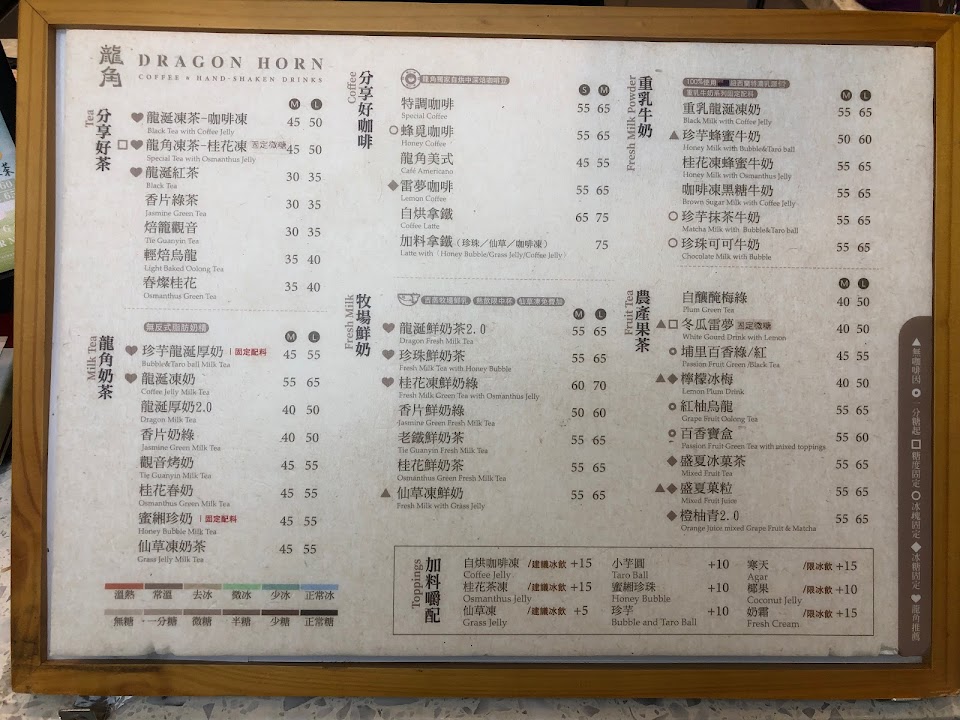 龍角 DRAGON HORN
COFFEE & HAND-SHAKEN DRINKS
Tea 分享好茶
M L
♥ 龍涎凍茶-咖啡凍 45 50
Black Tea with Coffee Jelly
□♥ 龍角凍茶-桂花凍 固定微糖 45 50
Special Tea with Osmanthus Jelly
♥ 龍涎紅茶 30 35
Black Tea
香片綠茶 30 35
Jasmine Green Tea
焙籠觀音 30 35
Tie Guanyin Tea
輕焙烏龍 35 40
Light Baked Oolong Tea
春燦桂花 35 40
Osmanthus Green Tea
Milk Tea 龍角奶茶
無反式脂肪奶精
M L
♥ 珍芋龍涎厚奶 | 固定配料 45 55
Bubble&Taro ball Milk Tea
♥ 龍涎凍奶 55 65
Coffee Jelly Milk Tea
龍涎厚奶2.0 40 50
Dragon Milk Tea
香片奶綠 40 50
Jasmine Green Milk Tea
觀音烤奶 45 55
Tie Guanyin Milk Tea
桂花春奶 45 55
Osmanthus Green Milk Tea
蜜緗珍奶 | 固定配料 45 55
Honey Bubble Milk Tea
仙草凍奶茶 45 55
Grass Jelly Milk Tea
溫熱 常溫 去冰 微冰 少冰 正常冰
無糖 一分糖 微糖 半糖 少糖 正常糖
Coffee 分享好咖啡
龍角獨家自烘中深焙咖啡豆
S M
特調咖啡 55 65
Special Coffee
○ 蜂覓咖啡 55 65
Honey Coffee
龍角美式 45 55
Café Americano
◆ 雷夢咖啡 55 65
Lemon Coffee
自烘拿鐵 65 75
Coffee Latte
加料拿鐵 (珍珠/仙草/咖啡凍) 75
Latte with (Honey Bubble/Grass Jelly/Coffee Jelly)
Fresh Milk 牧場鮮奶
吉蒸牧場鮮乳 熱飲限中杯 仙草凍免費加
M L
♥ 龍涎鮮奶茶2.0 55 65
Dragon Fresh Milk Tea
♥ 珍珠鮮奶茶 55 65
Fresh Milk Tea with Honey Bubble
♥ 桂花凍鮮奶綠 60 70
Fresh Milk Green Tea with Osmanthus Jelly
香片鮮奶綠 50 60
Jasmine Green Fresh Milk Tea
老鐵鮮奶茶 55 65
Tie Guanyin Fresh Milk Tea
桂花鮮奶茶 55 65
Osmanthus Green Fresh Milk Tea
▲ 仙草凍鮮奶 55 65
Fresh Milk with Grass Jelly
Fresh Milk Powder 重乳牛奶
100%使用 紐西蘭特濃乳源
重乳牛奶系列固定配料
M L
重乳龍涎凍奶 55 65
Black Milk with Coffee Jelly
▲ 珍芋蜂蜜牛奶 50 60
Honey Milk with Bubble&Taro ball
桂花凍蜂蜜牛奶 55 65
Honey Milk with Osmanthus Jelly
咖啡凍黑糖牛奶 55 65
Brown Sugar Milk with Coffee Jelly
○ 珍芋抹茶牛奶 55 65
Matcha Milk with Bubble&Taro ball
○ 珍珠可可牛奶 55 65
Chocolate Milk with Bubble
Fruit Tea 農產果茶
M L
自釀醃梅綠 40 50
Plum Green Tea
▲□ 冬瓜雷夢 固定微糖 40 50
White Gourd Drink with Lemon
埔里百香綠/紅 45 55
Passion Fruit Green /Black Tea
▲◆ 檸檬冰梅 40 50
Lemon Plum Drink
紅柚烏龍 55 65
Grape Fruit Oolong Tea
百香寶盒 55 60
Passion Fruit Green Tea with mixed toppings
◆ 盛夏冰菓茶 55 65
Mixed Fruit Tea
▲◆ 盛夏菓粒 55 65
Mixed Fruit Juice
◆ 橙柚青2.0 55 65
Orange Juice mixed Grape Fruit & Matcha
Toppings 加料嚼配
自烘咖啡凍 /建議冰飲 +15 小芋圓 +10 寒天 /限冰飲 +15
Coffee Jelly Taro Ball Agar
桂花茶凍 /建議冰飲 +15 蜜緗珍珠 +10 椰果 /限冰飲 +10
Osmanthus Jelly Honey Bubble Coconut Jelly
仙草凍 /建議冰飲 +5 珍芋 +10 奶霜 /限冰飲 +15
Grass Jelly Bubble and Taro Ball Fresh Cream
▲無咖啡因 一分糖起 □糖度固定 ○冰塊固定 ◆冰糖固定 ♥龍角推薦